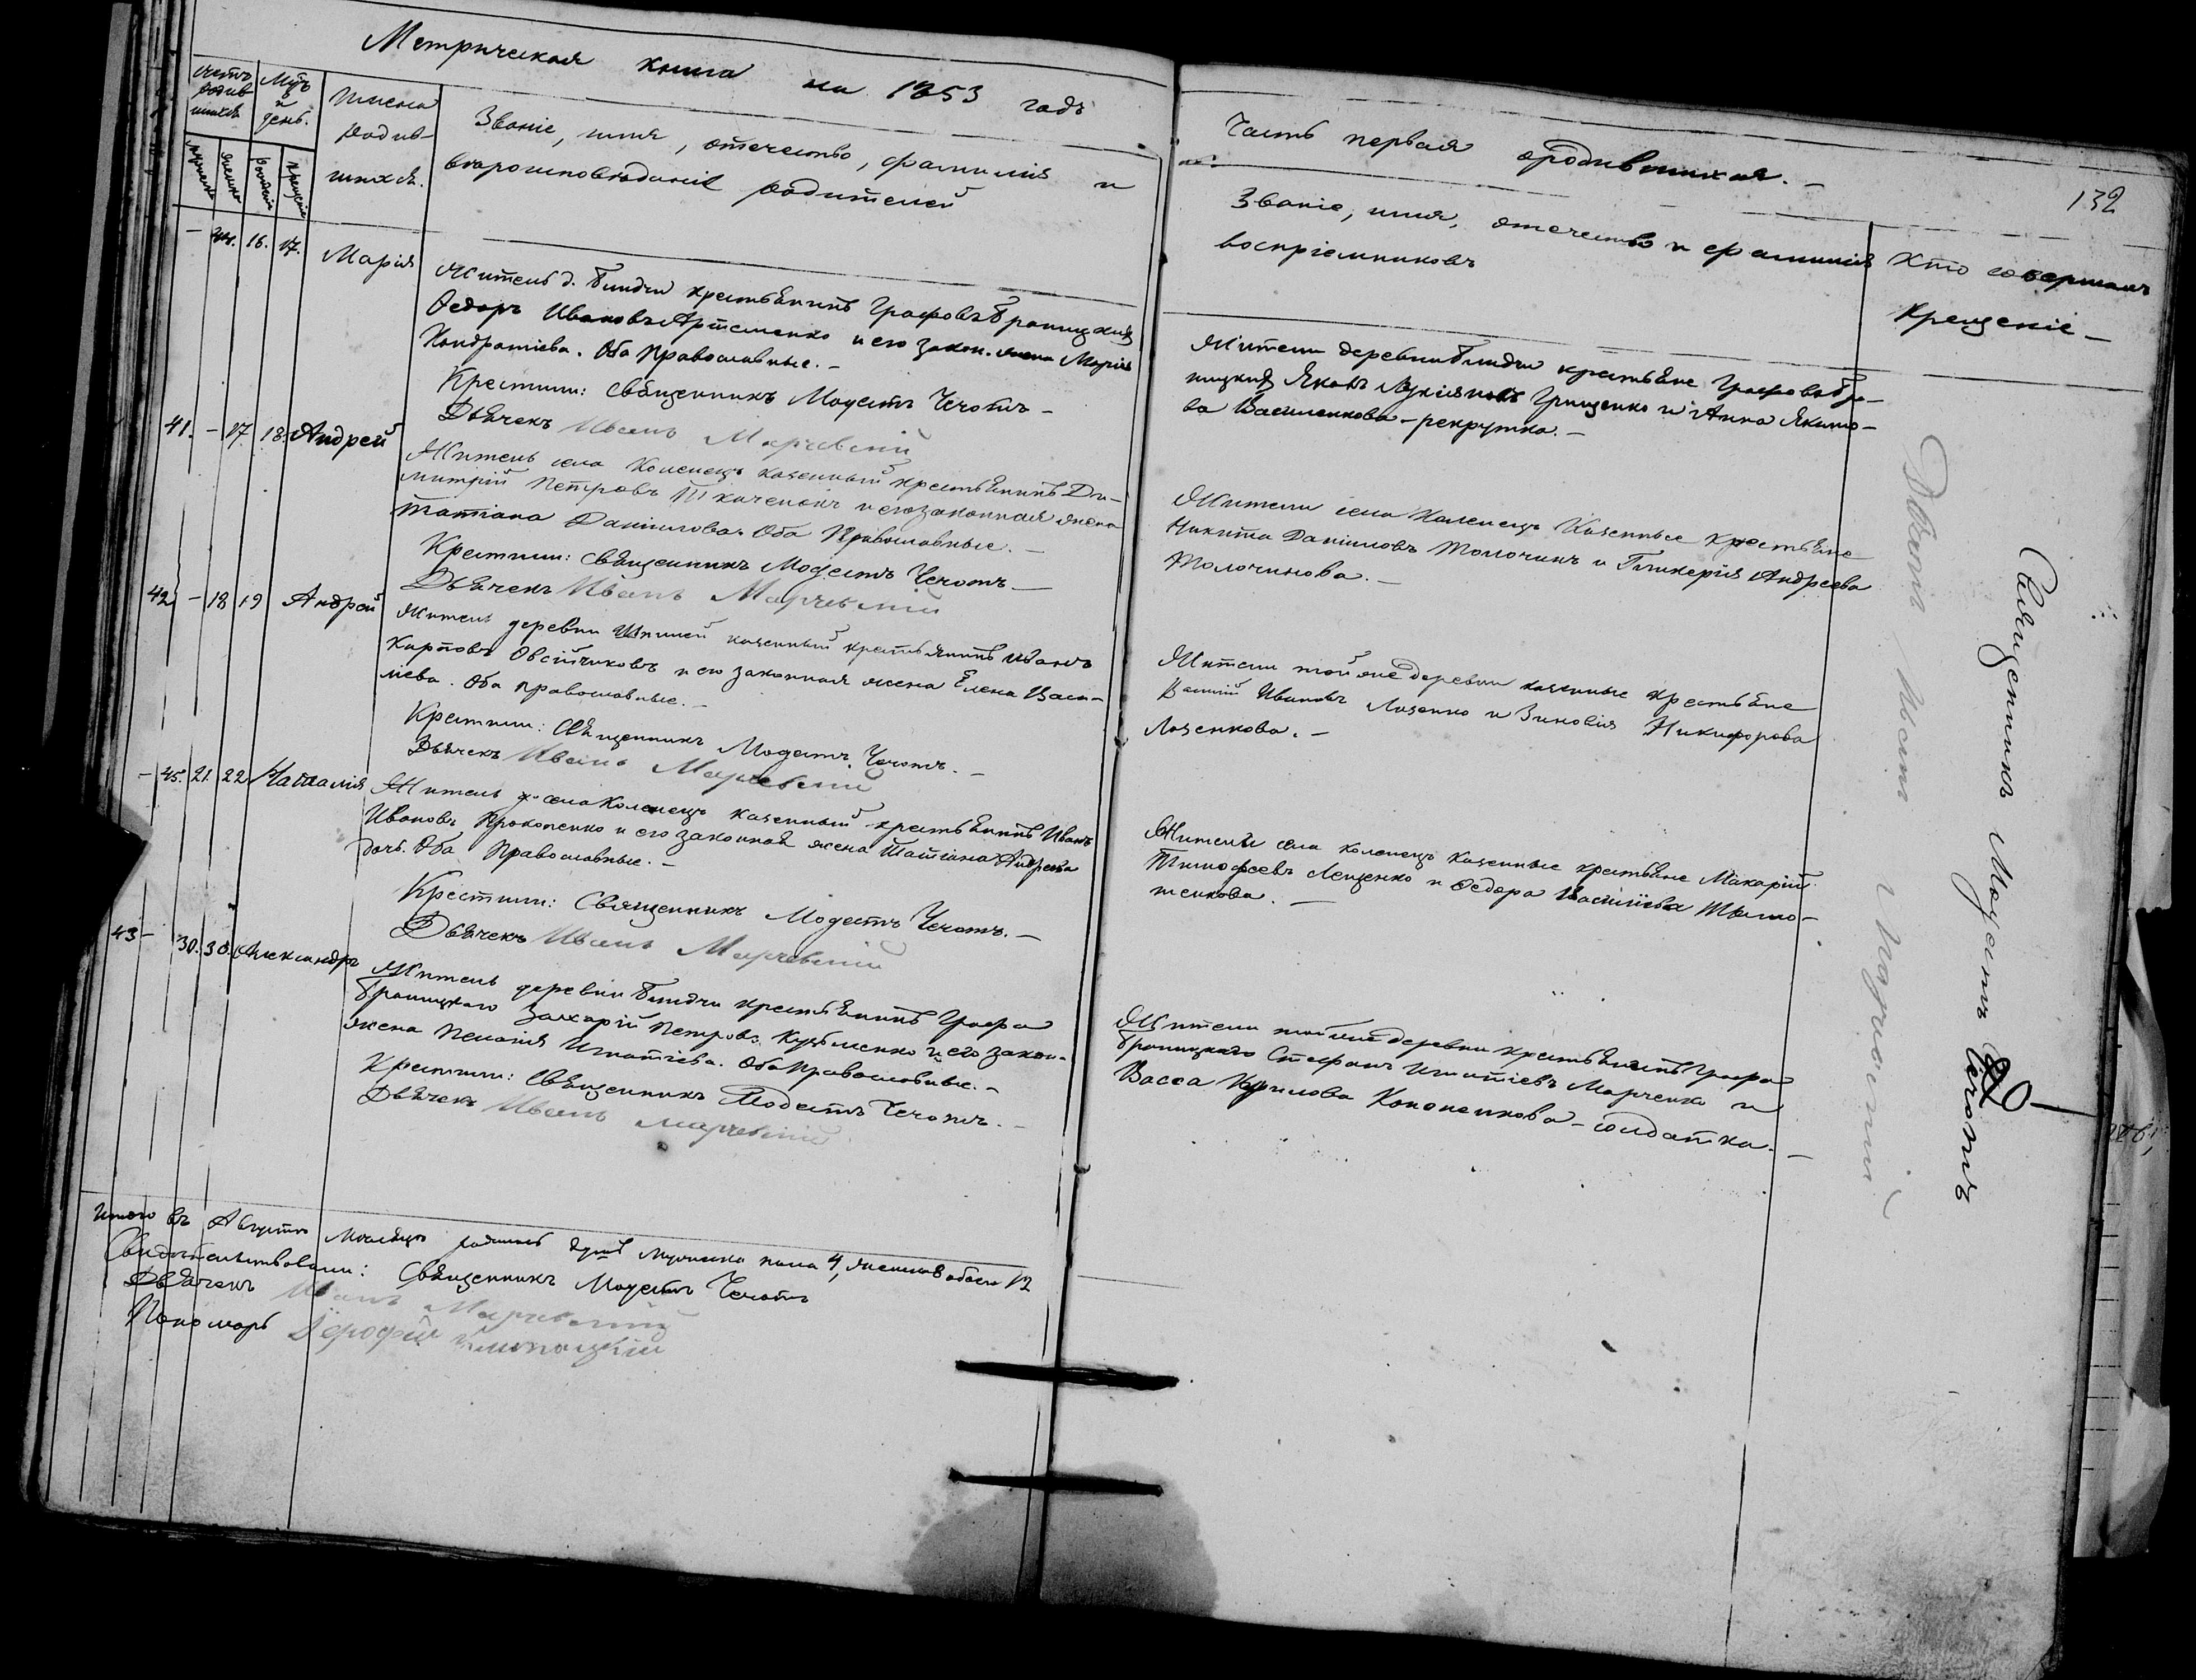 Метрическая книга на 1853 годъ
Счетъ родив шихся
Мцъ и день.
Имена родив- шихся.
Званіе, имя, отечество, фамилія и
вѣроисповѣданіе родителей
мужеска
женска
рожденія
крещенія
— 44. 16. 17. Марія
Житель д. Бикди крестьянинъ Графовъ Браницкихъ
Ѳедоръ Ивановъ Артеменко и его закон. жена Марія
Кондратіева. Оба Православные. —
Крестили: Священникъ Модестъ Чечотъ —
Дьячекъ Иванъ
41. — 17. 18. Андрей
Житель села Коленецъ казенный крестьянинъ Ди-
митрій Петровъ Ткаченокъ и его законная жена
Татіана Даніилова. Оба Православные. —
Крестили: Священникъ Модестъ Чечотъ —
Дьячекъ Иванъ
42 — 18 19 Андрей
Житель деревни Шпилей казенный крестьянинъ Иванъ
Карповъ Овсійчиковъ и его законная жена Елена Васи-
лева. Оба православные. —
Крестили: Священникъ Модестъ Чечотъ. —
Дьячекъ Иванъ
— 45. 21. 22 Наталія
Житель села Коленецъ казенный крестьянинъ Иванъ
Ивановъ Прокопенко и его законная жена Татіана Андреева
дочь. Оба Православные. —
Крестили: Священникъ Модестъ Чечотъ. —
Дьячекъ Иванъ
43 — 30. 30. Александръ
Житель деревни крестьянинъ Графа
Браницкаго Захарій Петровъ Кузьменко и его закон.
жена Пелагія Игнатіева. Оба Православные. —
Крестили: Священникъ Модестъ Чечотъ. —
Дьячекъ Иванъ
Итого въ Августѣ Месяцѣ родилось душъ мужеска пола 4, женска 8 обоего 12
Свидѣтельствовали: Священникъ Модестъ Чечотъ
Дьячекъ Иванъ
Пономарь
Часть первая о родившихся. —
132
Званіе, имя, отечество и фамилія
воспріемниковъ
Кто совершалъ
Крещеніе —
Жители деревни крестьяне Графовъ Бра-
ницкихъ Яковъ Лукіяновъ Грищенко и Анна Якимо-
ва Василенкова — рекрутка. —
Жители села Коленецъ Казенные крестьяне
Никита Даніиловъ Толочинъ и Гликерія Андреева
Толочинова. —
Жители той же деревни казенные крестьяне
Василій Ивановъ Лазенко и Зиновія Никифорова
Лазенкова. —
Жители села Коленецъ казенные крестьяне Макарій
Тимофеевъ Лещенко и Ѳедора Василіева Тимо-
шенкова. —
Жители той же деревни крестьянинъ Графа
Браницкаго Стефанъ Игнатіевъ Марченко и
Васса Кирилова Кононенкова — солдатка. —
Священникъ Модестъ Чечотъ
Дьячекъ Иванъ